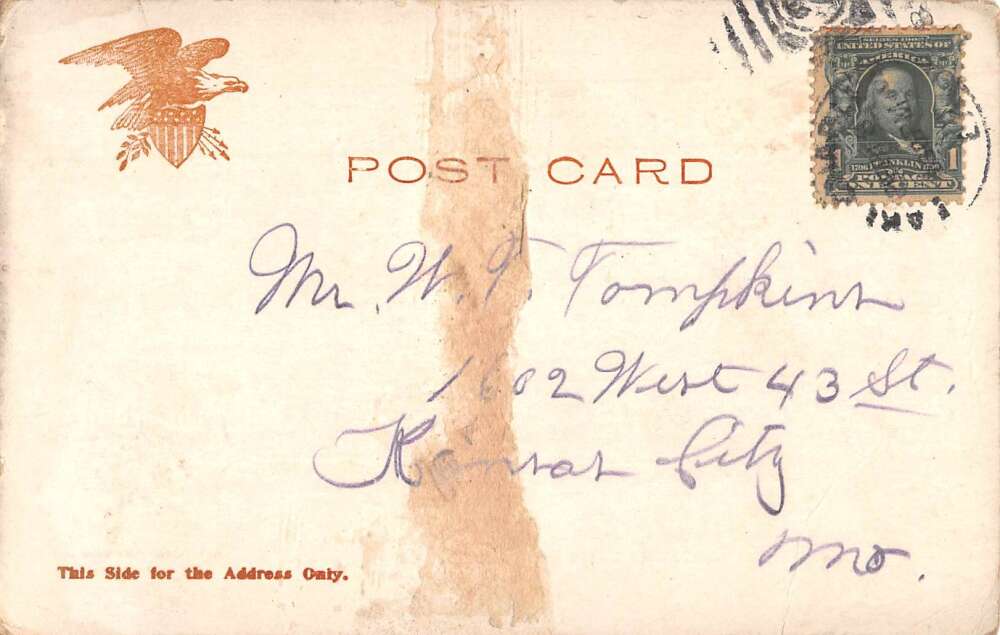 SERIES 1902
UNITED STATES OF
AMERICA
1706 FRANKLIN 1790
1 POSTAGE 1
ONE CENT
POST CARD
Mr. W. T. Tompkins
1602 West 43 St.
Kansas City
Mo.
This Side for the Address Only.